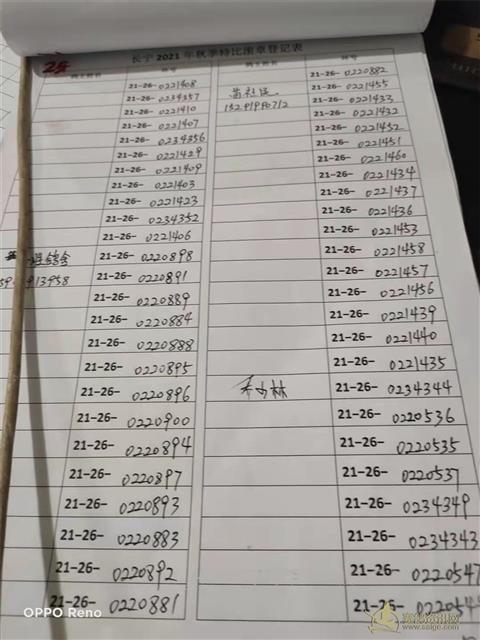 长宁 2021 年秋季特比环章登记表
鸽主姓名 环号 鸽主姓名 环号
21-26- 0221408
21-26- 0234357
21-26- 0221410
21-26- 0221407
21-26- 0234356
21-26- 0221429
21-26- 0221409
21-26- 0221403
21-26- 0221423
21-26- 0234352
21-26- 0221406
21-26- 0220898
13958 21-26- 0220891
21-26- 0220889
21-26- 0220884
21-26- 0220888
21-26- 0220895
21-26- 0220896
21-26- 0220900
21-26- 0220894
21-26- 0220897
21-26- 0220893
21-26- 0220883
21-26- 0220892
21-26- 0220881
21-26- 0220882
21-26- 0221455
21-26- 0221433
21-26- 0221432
21-26- 0221452
21-26- 0221451
21-26- 0221460
21-26- 0221434
21-26- 0221437
21-26- 0221436
21-26- 0221453
21-26- 0221458
21-26- 0221457
21-26- 0221456
21-26- 0221439
21-26- 0221440
21-26- 0221435
21-26- 0234344
21-26- 0220536
21-26- 0220535
21-26- 0220537
21-26- 0234349
21-26- 0234343
21-26- 0220547
21-26- 022054
OPPO Reno
www.saige.com